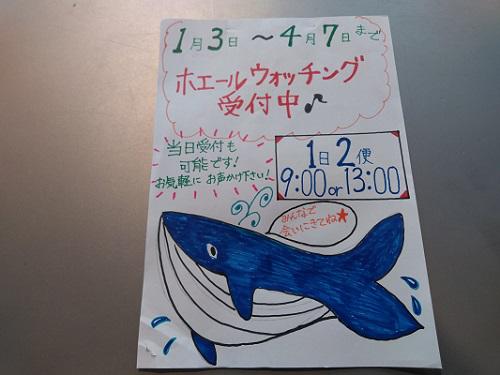 1月3日 ~4月7日まで
ホエールウォッチング
受付中♪
当日受付も
可能です!
お気軽にお声かけ下さい!
1日2便
9:00or13:00
みんなで
会いにきてね★